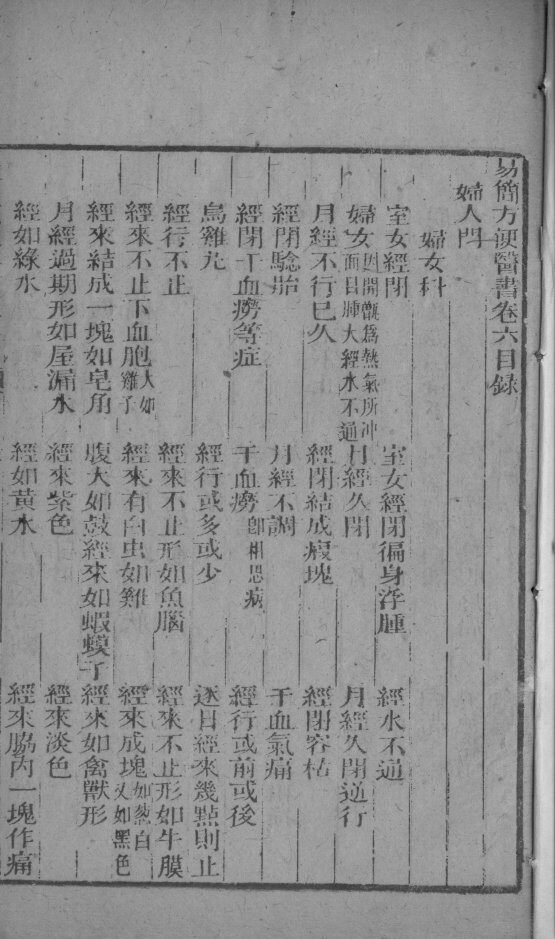 易簡方便醫書卷六目錄
婦人門
婦女科
室女經閉 室女經閉徧身浮腫 經水不通
婦女因開甑爲熱氣所冲面目腫大經水不通 月經久閉 月經久閉逆行
月經不行已久 經閉結成瘕塊 經閉容枯
經閉驗胎 月經不調 干血氣痛
經閉干血癆等症 干血癆卽相思病 經行或前或後
烏雞丸 經行或多或少 逐日經來幾點則止
經行不止 經來不止形如魚腦 經來不止形如牛膜
經來不止下血胞大如雞子 經來有白虫如雞 經來成塊如葱白又如黑色
經來結成一塊如皂角 腹大如鼓經來如蝦蟆子 經來如禽獸形
月經過期形如屋漏水 經來紫色 經來淡色
經如綠水 經如黃水 經來脇內一塊作痛